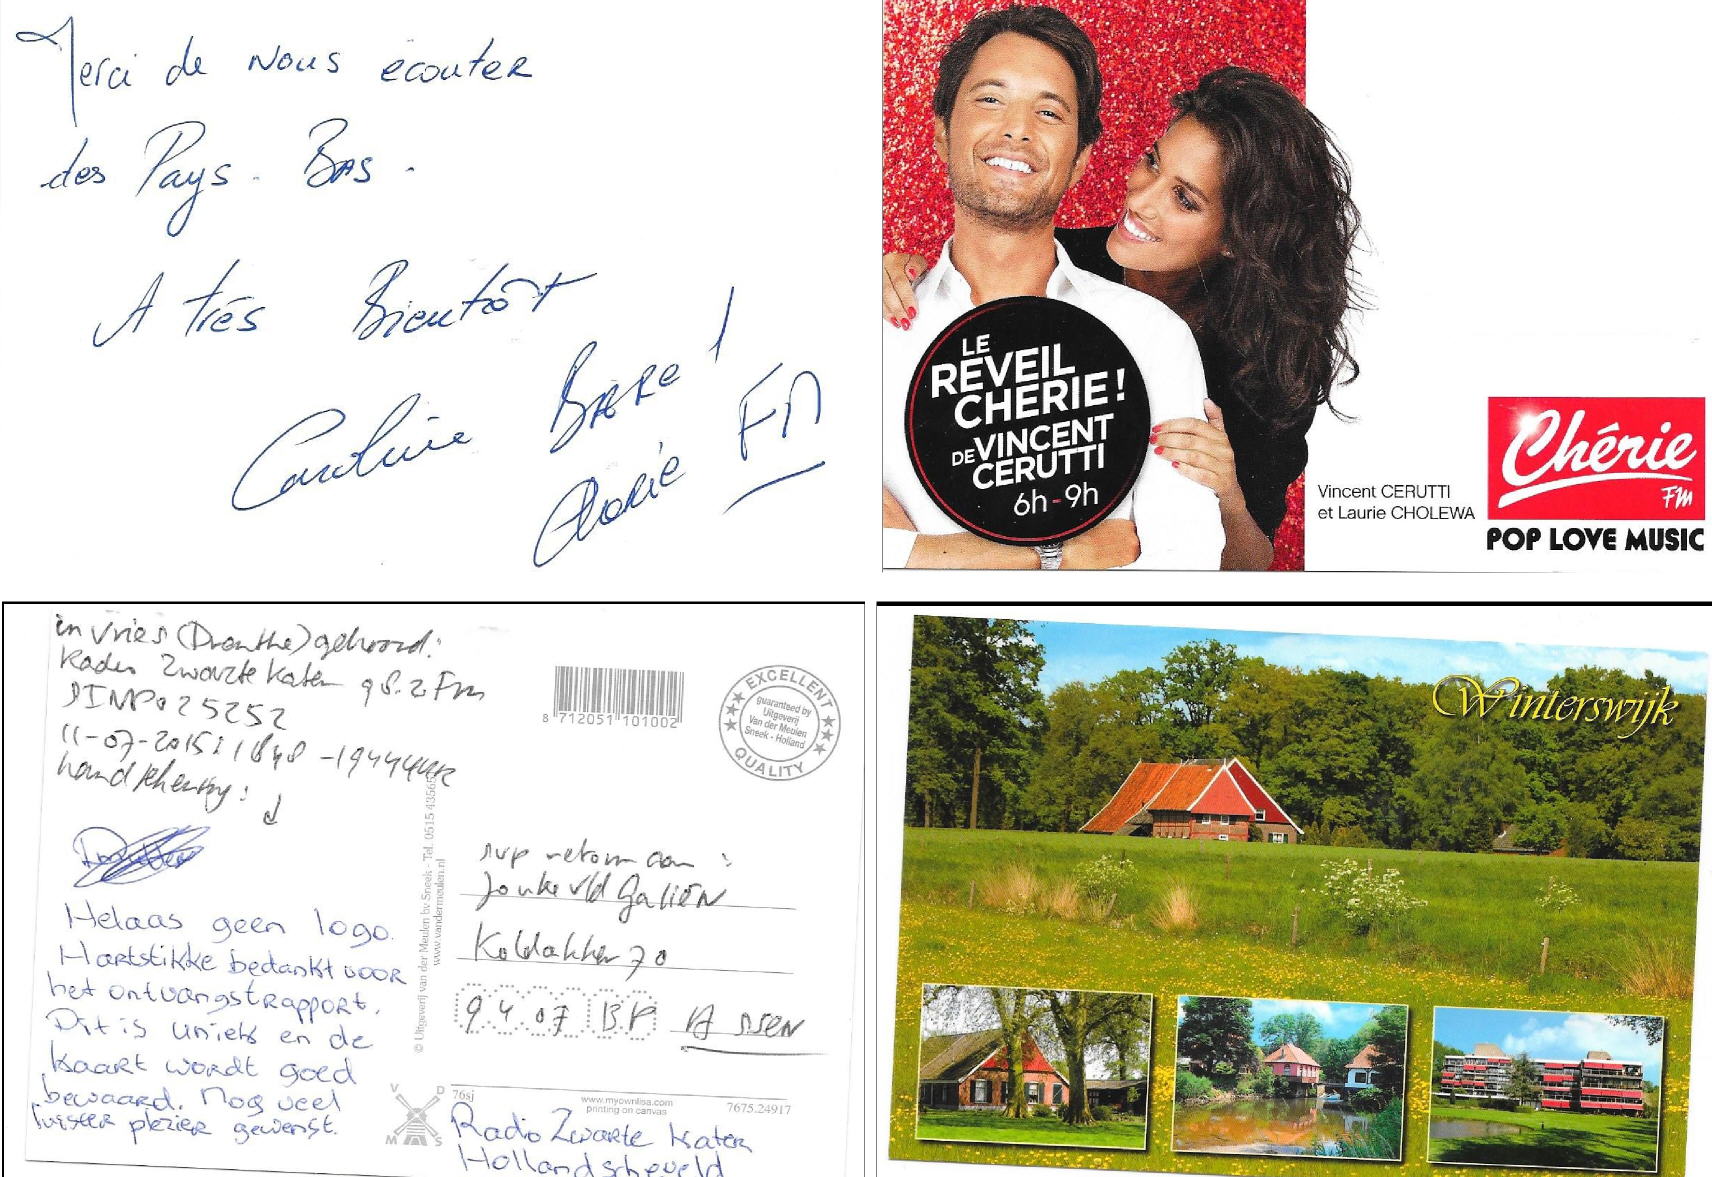 Merci de nous écouter
des Pays-Bas.
A très Bientôt
Caroline !
Chérie FM
LE
RÉVEIL
CHÉRIE !
DE VINCENT
CERUTTI
6h-9h
Vincent CERUTTI
et Laurie CHOLEWA
Chérie
FM
POP LOVE MUSIC
in Vries (Drenthe) gehoord:
Radio Zwarte Kater 98.2 FM
SINPO 25252
11-07-2015: 1848 - 1944 uur
handtekening:
Helaas geen logo.
Hartstikke bedankt voor
het ontvangstrapport.
Dit is uniek en de
kaart wordt goed
bewaard. Nog veel
luister plezier gewenst.
8 712051 101002
EXCELLENT
guaranteed by
Uitgeverij
Van der Meulen
Sneek - Holland
QUALITY
© Uitgeverij van der Meulen bv Sneek - Tel. 0515
www.vandermeulen.nl
svp retour aan:
Jouke vld Galiën
Koldakker 70
9407 BP ASSEN
V D
M S
76sj
www.myownlisa.com
printing on canvas
7675.24917
Radio Zwarte Kater
Hollandscheveld
Winterswijk